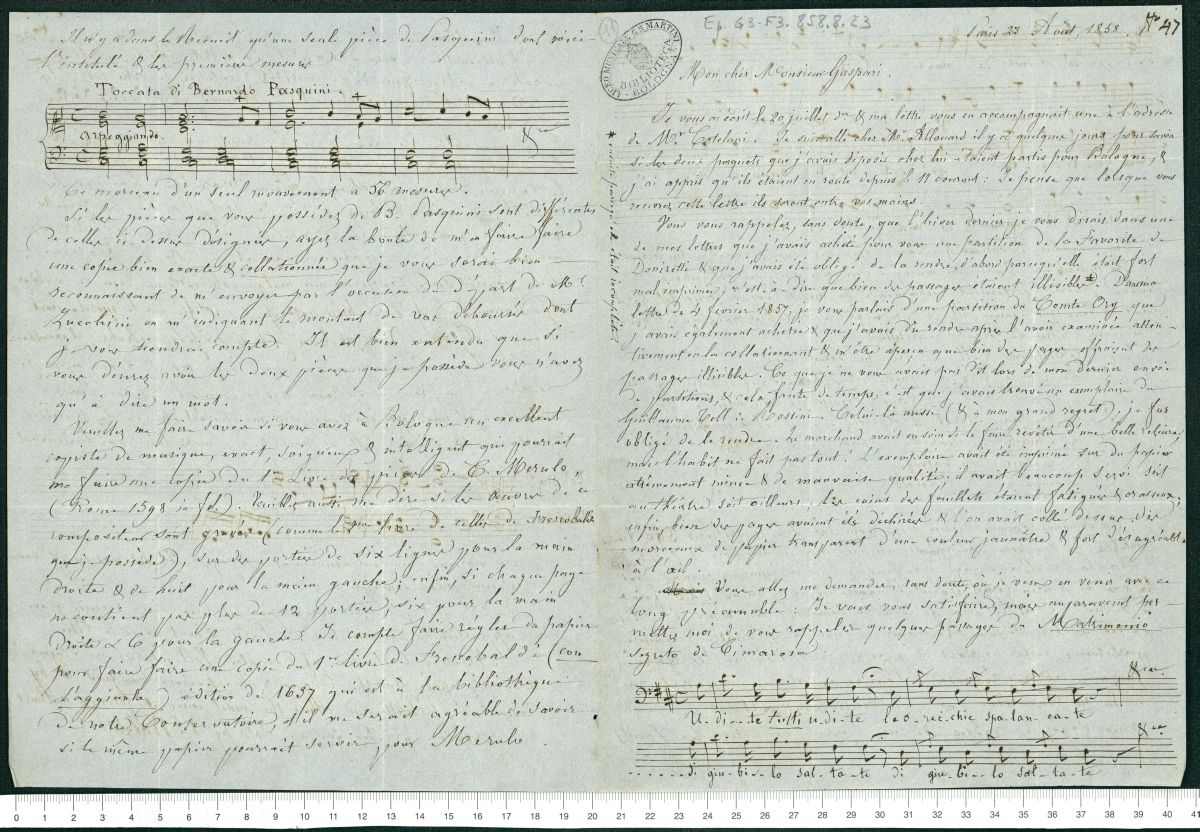 Il n'y a dans le Recueil qu'une seule pièce de Pasquini dont voici
l'intitulé & les premières mesures
Toccata di Bernardo Pasquini.
Arpeggiando.
Ce morceau d'un seul mouvement a 76 mesures.
Si les pièces que vous possédez de B. Pasquini sont différentes
de celle ci dessus désignée, ayez la bonté de m'en faire faire
une copie bien exacte & collationnée que je vous serai bien
reconnaissant de m'envoyer par l'occasion du départ de Mr
Zucchini en m'indiquant le montant de vos déboursés dont
je vous tiendrai compte. Il est bien entendu que si
vous désirez avoir les deux pièces que je possède vous n'avez
qu'à dire un mot.
Veuillez me faire savoir si vous avez à Bologne un excellent
copiste de musique, exact, soigneux & intelligent qui pourrait
me faire une copie du 1er Livre des pièces de C. Merulo,
(Rome 1598 in fol). Veuillez aussi me dire si les œuvres de ce
compositeur sont gravées (comme le livre de celles de Frescobaldi
que je possède), sur des portées de six lignes pour la main
droite & de huit pour la main gauche; enfin, si chaque page
ne contient pas plus de 12 portées, six pour la main
droite & 6 pour la gauche. Je compte faire régler du papier
pour faire faire une copie du 1er livre de Frescobaldi (con
L'aggiunta) édition de 1637 qui est à la bibliothèque
de notre Conservatoire, & il me serait agréable de savoir
si le même papier pourrait servir pour Merulo.
LICEO MUSICALE G.B. MARTINI
BIBLIOTECA
BOLOGNA
Ep. G3-F3. 858.8.23
Paris 23 Août 1858. No 47
Mon cher Monsieur Gaspari,
Je vous ai écrit le 20 juillet dr & ma lettre vous en accompagnait une à l'adresse
de Mr Catelani. Je suis allé chez Mr Allouard il y a quelques jours pour savoir
si les deux paquets que j'avais déposés chez lui étaient partis pour Bologne, &
j'ai appris qu'ils étaient en route depuis le 11 courant: Je pense que lorsque vous
recevrez cette lettre ils seront entre vos mains.
Vous vous rappelez, sans doute, que l'hiver dernier je vous disais dans une
de mes lettres que j'avais acheté pour vous une partition de la Favorite de
Donizetti & que j'avais été obligé de la rendre, d'abord parcequ'elle était fort
mal imprimée, c'est-à-dire que bien des passages étaient illisibles*. Dans ma
lettre du 4 février 1857, je vous parlais d'une partition du Comte Ory que
j'avais également achetée & que j'avais dû rendre après l'avoir examinée atten-
tivement en la collationnant & m'être aperçu que bien des pages offraient des
passages illisibles. Ce que je ne vous avais pas dit lors de mon dernier envoi
de partitions, & cela faute de temps, c'est que j'avais trouvé un exemplaire du
Guillaume Tell de Rossini. Celui-là aussi (& à mon grand regret), je fus
obligé de le rendre. Le marchand avait eu soin de le faire revêtir d'une belle reliure,
mais l'habit ne fait pas tout! L'exemplaire avait été imprimé sur du papier
extrêmement mince & de mauvaise qualité; il avait beaucoup servi soit
au théâtre soit ailleurs, les coins des feuillets étaient fatigués & crasseux;
enfin, bien des pages avaient été déchirées & l'on avait collé dessus des
morceaux de papier transparent d'une couleur jaunâtre & fort désagréable
à l'œil.
Vous allez me demander, sans doute, où je veux en venir avec ce
long préambule: Je vais vous satisfaire, mais auparavant per-
mettez moi de vous rappeler quelques passages du Matrimonio
Segreto de Cimarosa
U-di-te tutti u-di-te le o-rec-chie spa-lan-ca-te
di giu-bi-lo sal-ta-te di giu-bi-lo sal-ta-te
0 1 2 3 4 5 6 7 8 9 10 11 12 13 14 15 16 17 18 19 20 21 22 23 24 25 26 27 28 29 30 31 32 33 34 35 36 37 38 39 40 41